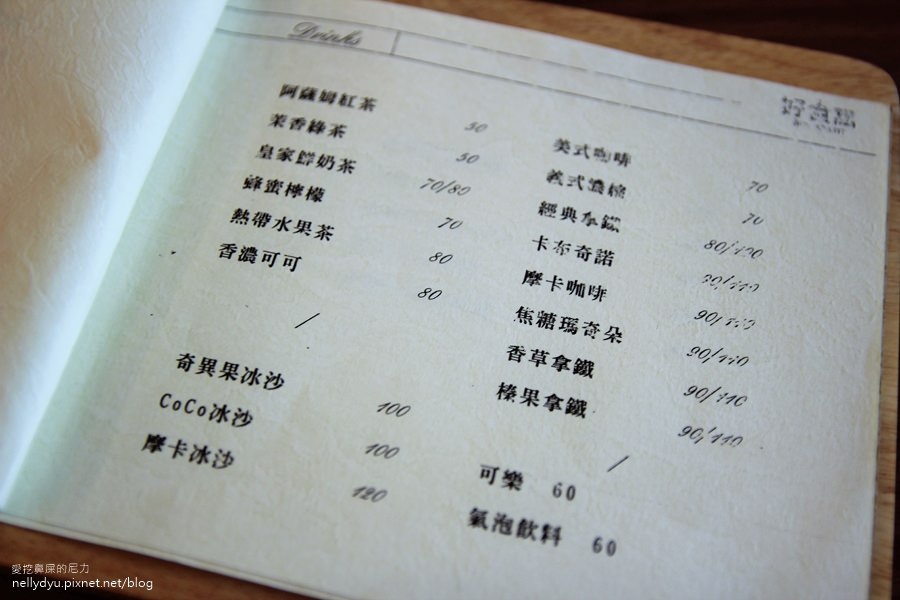 Drinks
阿薩姆紅茶 50
茉香綠茶 50
皇家鮮奶茶 70/80
蜂蜜檸檬 70
熱帶水果茶 80
香濃可可 80
/
奇異果冰沙 100
CoCo冰沙 100
摩卡冰沙 120
美式咖啡 70
義式濃縮 70
經典拿鐵 80/100
卡布奇諾 90/110
摩卡咖啡 90/110
焦糖瑪奇朵 90/110
香草拿鐵 90/110
榛果拿鐵 90/110
/
可樂 60
氣泡飲料 60
愛挖鼻屎的尼力
nellydyu.pixnet.net/blog